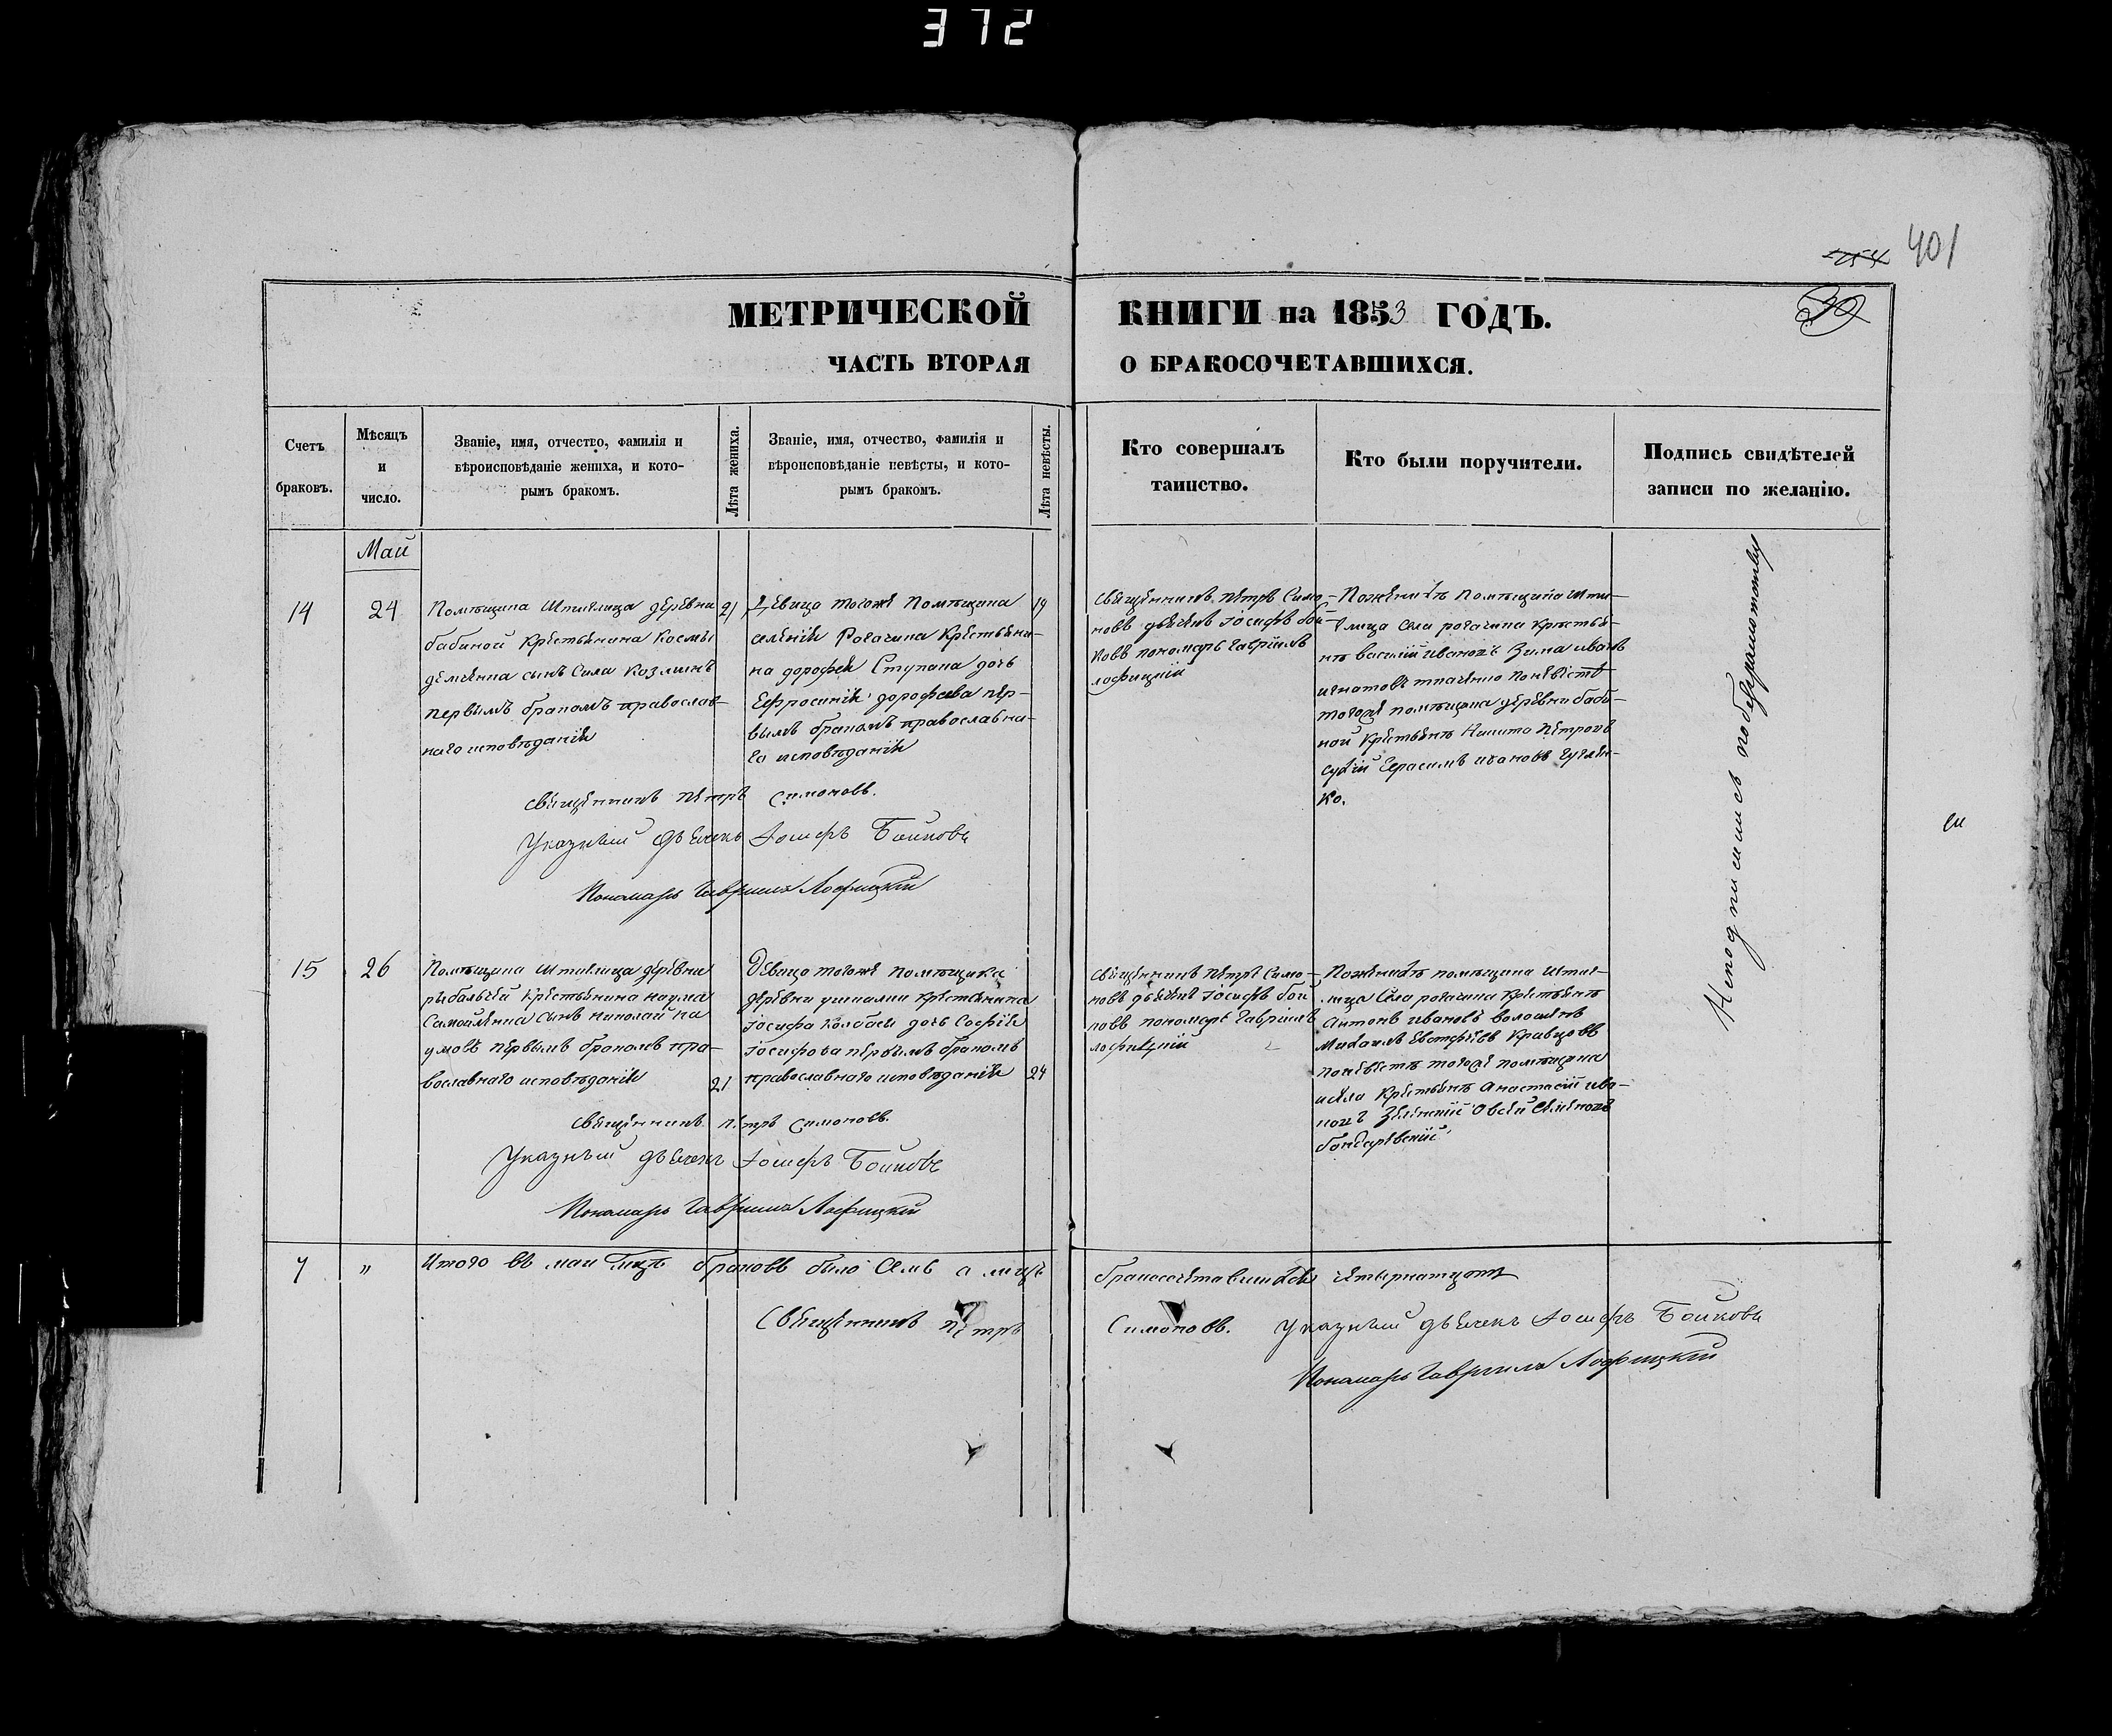 372
401
254
МЕТРИЧЕСКОЙ КНИГИ на 1853 ГОДЪ.
ЧАСТЬ ВТОРАЯ О БРАКОСОЧЕТАВШИХСЯ.
Счетъ
браковъ.
Мѣсяцъ
и
число.
Званіе, имя, отчество, фамилія и
вѣроисповѣданіе жениха, и кото-
рымъ бракомъ.
Лѣта жениха.
Званіе, имя, отчество, фамилія и
вѣроисповѣданіе невѣсты, и кото-
рымъ бракомъ.
Лѣта невѣсты.
Кто совершалъ
таинство.
Кто были поручители.
Подпись свидѣтелей
записи по желанію.
Май
14
24
Помѣщика Штиглица деревни
бабиной Крестьянина Космы
сынъ Сила Козминъ
первымъ бракомъ православ-
наго исповѣданія
21
Девица тогоже Помѣщика
селенія Рогачика Крестьяни-
на дорофея Ступака дочь
Ефросинія дорофеева пер-
вымъ бракомъ православна-
го исповѣданія
19
Священникъ Петръ Симо-
новъ дьячекъ Іосифъ Бой-
ковъ пономарь Гавріилъ
лофицкій
По женихѣ Помѣщика Шти-
глица Села рогачика Крестья-
нѣ Василій Ивановъ Зима иванъ
игнатовъ по невѣстѣ
тогоже помѣщика деревни баби-
ной Крестьянѣ Никита Петровъ
Герасимъ ивановъ
ко.
Священникъ Петръ Симоновъ.
Указный дьячекъ Іосифъ Бойковъ
Пономарь Гавріилъ Лофицкій
Неподписались по безграмотству
15
26
Помѣщика Штиглица деревни
рыбальчей Крестьянина наума
Самойленка Сынъ николай на-
умовъ первымъ бракомъ пра-
вославнаго исповѣданія
21
Девица тогоже помѣщика
деревни крестьянина
Іосифа Колбаси дочь Софія
Іосифова первымъ бракомъ
православнаго исповѣданія
24
Священникъ Петръ Симо-
новъ дьячекъ Іосифъ бой-
ковъ пономарь Гавріилъ
лофицкій
По женихѣ помѣщика Штиг-
лица Села рогачика Крестьянѣ
Антонъ ивановъ волошинъ
Михаилъ Евстафіевъ Кравцовъ
по невѣстѣ тогоже помѣщика
исела Крестьянѣ Анастасій ива-
новъ Зеленскій Овсей Семеновъ
бондаревскій
Священникъ Петръ Симоновъ.
Указный дьячекъ Іосифъ Бойковъ
Пономарь Гавріилъ Лофицкій
7
"
Итого въ маи мцѣ браковъ было Семь а лицъ бракосочетавшихся четырнатцать
Священникъ Петръ Симоновъ. Указный дьячекъ Іосифъ Бойковъ
Пономарь Гавріилъ Лофицкій